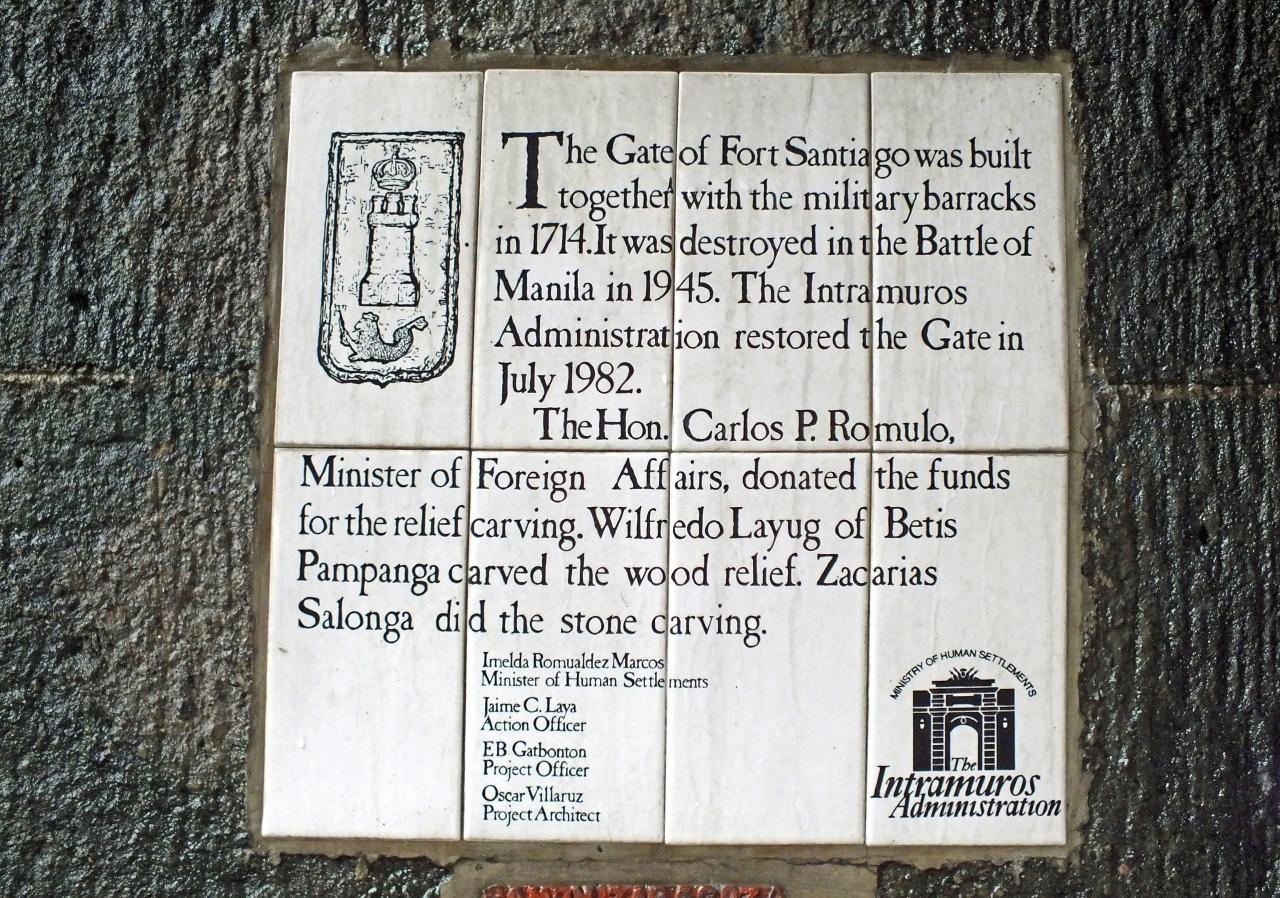 The Gate of Fort Santiago was built
together with the military barracks
in 1714. It was destroyed in the Battle of
Manila in 1945. The Intramuros
Administration restored the Gate in
July 1982.
The Hon. Carlos P. Romulo,
Minister of Foreign Affairs, donated the funds
for the relief carving. Wilfredo Layug of Betis
Pampanga carved the wood relief. Zacarias
Salonga did the stone carving.
Imelda Romualdez Marcos
Minister of Human Settlements
Jaime C. Laya
Action Officer
EB Gatbonton
Project Officer
Oscar Villaruz
Project Architect
MINISTRY OF HUMAN SETTLEMENTS
The
Intramuros
Administration